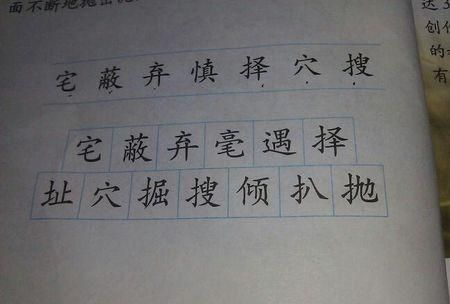 面不断地抛出
宅 蔽 弃 慎 择 穴 搜
宅蔽弃毫遇择
址穴掘搜倾扒抛
达
创作
的
有